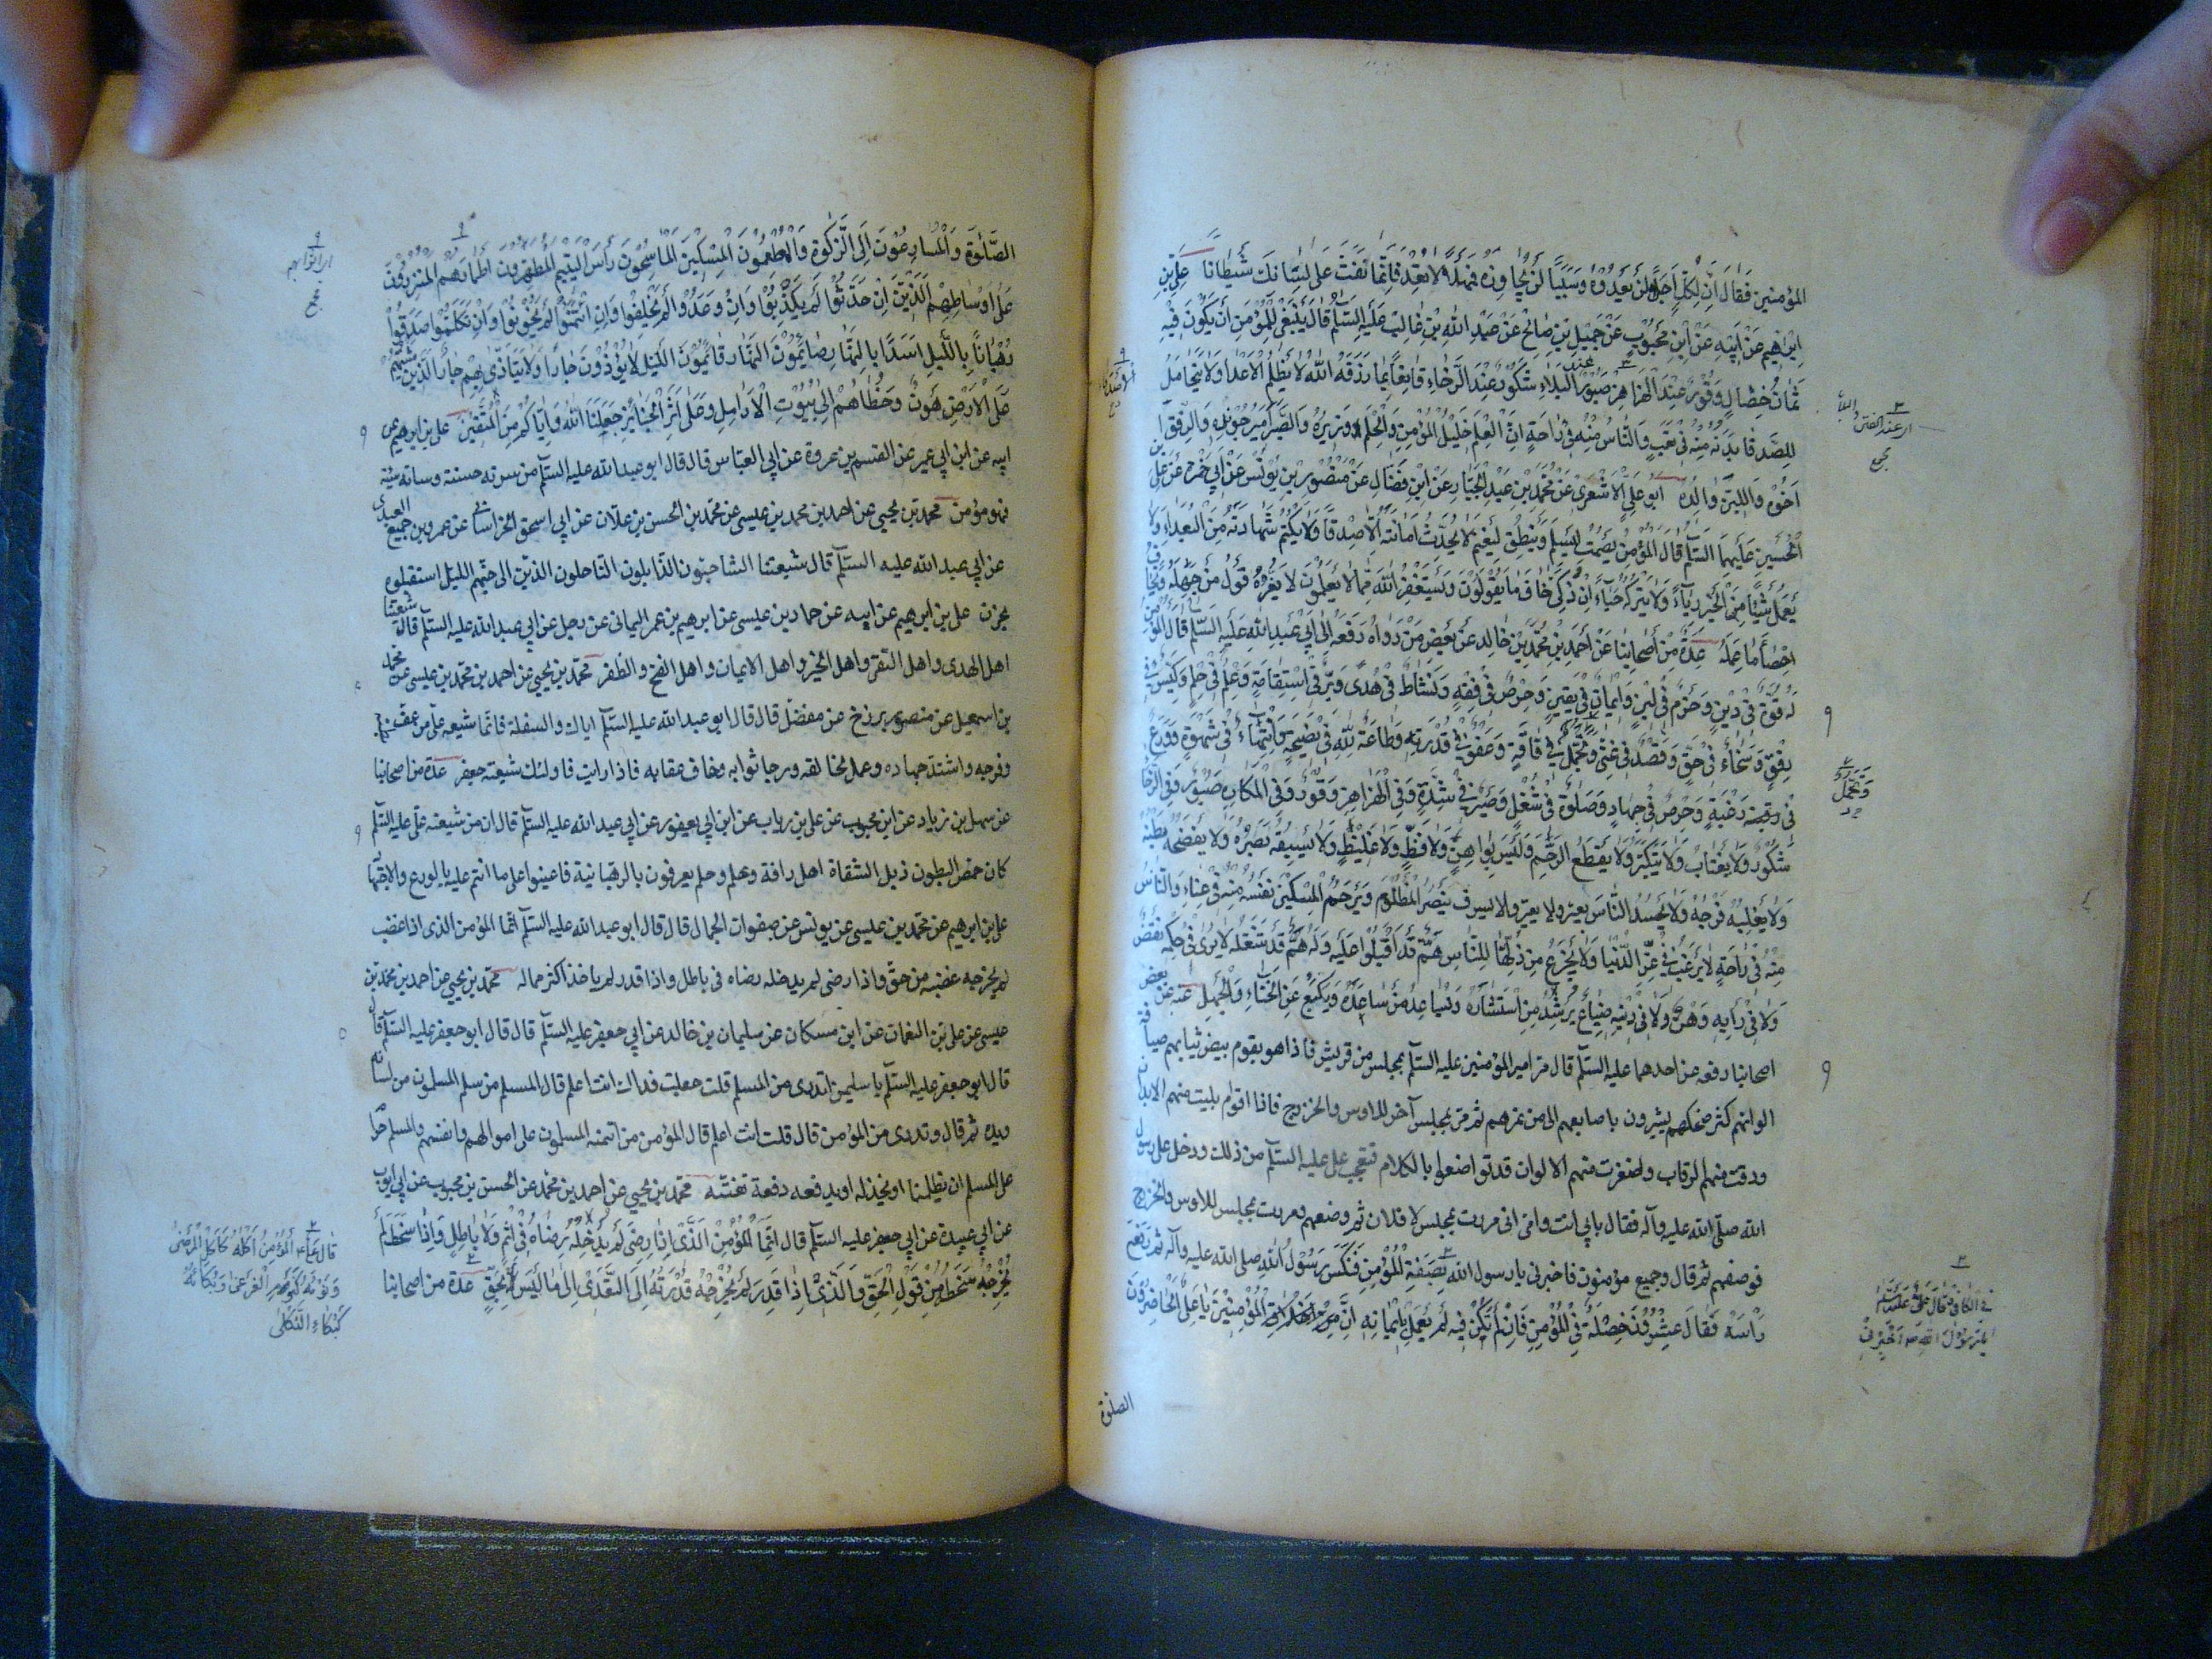 المؤمنین فقال انّ لكلّ اجلاً لن يعدوه وسبباً لن يجاوزه فمهلاً لا تعد فانّما نفث على لسانك شيطان علي بن
ابرهيم عن ابيه عن ابن محبوب عن جميل بن صالح عن عبد الله بن غالب عليه السلم قال ينبغي للمؤمن ان يكون فيه
ثمان خصال وقور عند الهزاهز صبور عند البلاء شكور عند الرخاء قانعاً بما رزقه الله لا يظلم الاعداء ولا يتحامل
للاصدقاء بدنه منه في تعب والناس منه في راحة ان العلم خليل المؤمن والحلم وزيره والصبر امير جنوده والرفق
اخوه واللين والده ابو علي الاشعري عن محمد بن عبد الجبار عن ابن فضال عن منصور بن يونس عن ابي حمزة عن علي بن
الحسين عليهما السلم قال المؤمن يصمت ليسلم وينطق ليغنم لا يحدث امانته الاصدقاء ولا يكتم شهادته من البعداء ولا
يعمل شيئاً من الخير رياءً ولا يتركه حياءً ان زكّي خاف ما يقولون ويستغفر الله مما لا يعلمون لا يغره قول من جهله ويخاف
احصاء ما عمله عدة من اصحابنا عن احمد بن محمد بن خالد عن بعض من رواه رفعه الى ابي عبد الله عليه السلم قال المؤمن
له قوة في دين وحزم في لين وايمان في يقين وحرص في فقه ونشاط في هدى وبرّ في استقامة وعلم في حلم وكيس في
رفق وسخاء في حق وقصد في غنى وتجمّل في فاقة وعفو في قدرة وطاعة لله في نصيحة وانتهاء في شهوة وورع
في رغبة وحرص في جهاد وصلوة في شغل وصبر في شدة وفي الهزاهز وقور وفي المكاره صبور وفي الرخاء
شكور ولا يغتاب ولا يتكبر ولا يقطع الرحم وليس بواهن ولا فظ ولا غليظ ولا يسبقه بصره ولا يفضحه بطنه
ولا يغلبه فرجه ولا يحسد الناس يعيّر ولا يعيّر ولا يسرف ينصر المظلوم ويرحم المسكين نفسه منه في عناء والناس
منه في راحة لا يرغب في عز الدنيا ولا يجزع من ذلها للناس همّ قد اقبلوا عليه وله همّ قد شغله لا يرى في حكمه نقص
ولا في رأيه وهن ولا في دينه ضياع يرشد من استشاره ويساعد من ساعده ويكيع عن الخناء والجهل عنه عن بعض
اصحابنا رفعه عن احدهما عليه السلم قال مرّ امير المؤمنين عليه السلم بمجلس من قريش فاذا هو بقوم بيض ثيابهم صافية
الوانهم كثير ضحكهم يشيرون باصابعهم الى من يمر بهم ثم مرّ بمجلس آخر للاوس والخزرج فاذا اقوام بليت منهم الابدان
ودقت منهم الرقاب واصفرت منهم الالوان قد تواضعوا بالكلام فتعجب علي عليه السلم من ذلك ودخل على رسول
الله صلّى الله عليه وآله فقال بابي انت وامّي اني مررت بمجلس لآل فلان ثم وصفهم ومررت بمجلس للاوس والخزرج
فوصفهم ثم قال وجميع مؤمنون فاخبرني يا رسول الله بصفة المؤمن فنكس رسول الله صلى الله عليه وآله ثم رفع
راسه فقال عشرون خصلة في المؤمن فان لم تكن فيه لم يكمل ايمانه ان من اخلاق المؤمنين يا علي الحاضرون
الصلوة
الصلوة والمسارعون الى الزكوة والمطعمون المسكين الماسحون رأس اليتيم المطهرون اطمارهم المتزرون
على اوساطهم الذين ان حدثوا لم يكذبوا وان وعدوا لم يخلفوا وان ائتمنوا لم يخونوا وان تكلموا صدقوا
رهبان بالليل اسد بالنهار صائمون النهار قائمون الليل لا يؤذون جاراً ولا يتاذى بهم جار الذين مشيهم
على الارض هون وخطاهم الى بيوت الارامل وعلى اثر الجنائز جعلنا الله واياكم من المتقين علي بن ابرهيم عن
ابيه عن ابن ابي عمير عن القسم بن عروة عن ابي العباس قال قال ابو عبد الله عليه السلم من سرته حسنته وساءته سيئته
فهو مؤمن محمد بن يحيى عن احمد بن محمد بن عيسى عن محمد بن الحسن بن علان عن ابي اسحق الخراساني عن عمرو بن جميع العبدي
عن ابي عبد الله عليه السلم قال شيعتنا الشاحبون الذابلون الناحلون الذين اذا جنهم الليل استقبلوه
بحزن علي بن ابرهيم عن ابيه عن حماد بن عيسى عن ابرهيم بن عمر اليماني عن رجل عن ابي عبد الله عليه السلم قال شيعتنا
اهل الهدى واهل التقى واهل الخير واهل الايمان واهل الفتح والظفر محمد بن يحيى عن احمد بن محمد بن عيسى عن محمد
بن اسمعيل عن منصور بزرج عن مفضل قال قال ابو عبد الله عليه السلم اياك والسفلة فانما شيعة علي من عف بطنه
وفرجه واشتد جهاده وعمل لخالقه ورجا ثوابه وخاف عقابه فاذا رايت فاولئك شيعة جعفر عدة من اصحابنا
عن سهل بن زياد عن ابن محبوب عن علي بن رياب عن ابن ابي يعفور عن ابي عبد الله عليه السلم قال ان من شيعة علي عليه السلم
كان خمص البطون ذبل الشفاة اهل رافة وعلم وحلم يعرفون بالرهبانية فاعينوا على ما انتم عليه بالورع والاجتهاد
علي بن ابرهيم عن محمد بن عيسى عن يونس عن صفوان الجمال قال قال ابو عبد الله عليه السلم انما المؤمن الذي اذا غضب
لم يخرجه غضبه من حق واذا رضي لم يدخله رضاه في باطل واذا قدر لم ياخذ اكثر مما له محمد بن يحيى عن احمد بن محمد بن
عيسى عن علي بن النعمان عن ابن مسكان عن سليمان بن خالد عن ابي جعفر عليه السلم قال قال ابو جعفر عليه السلم قال
قال ابو جعفر عليه السلم يا سليمن اتدرى من المسلم قلت جعلت فداك انت اعلم قال المسلم من سلم المسلمون من لسانه
ويده ثم قال وتدرى من المؤمن قال قلت انت اعلم قال المؤمن من ائتمنه المسلمون على اموالهم وانفسهم والمسلم حرام
على المسلم ان يظلمه او يخذله او يدفعه دفعة تعنته محمد بن يحيى عن احمد بن محمد عن الحسن بن محبوب عن ابي ايوب
عن ابي عبيدة عن ابي جعفر عليه السلم قال انما المؤمن الذي اذا رضي لم يدخله رضاه في اثم ولا باطل واذا سخط لم
يخرجه سخطه من قول الحق والذي اذا قدر لم يخرجه قدرته الى التعدي الى ما ليس له بحق عدة من اصحابنا